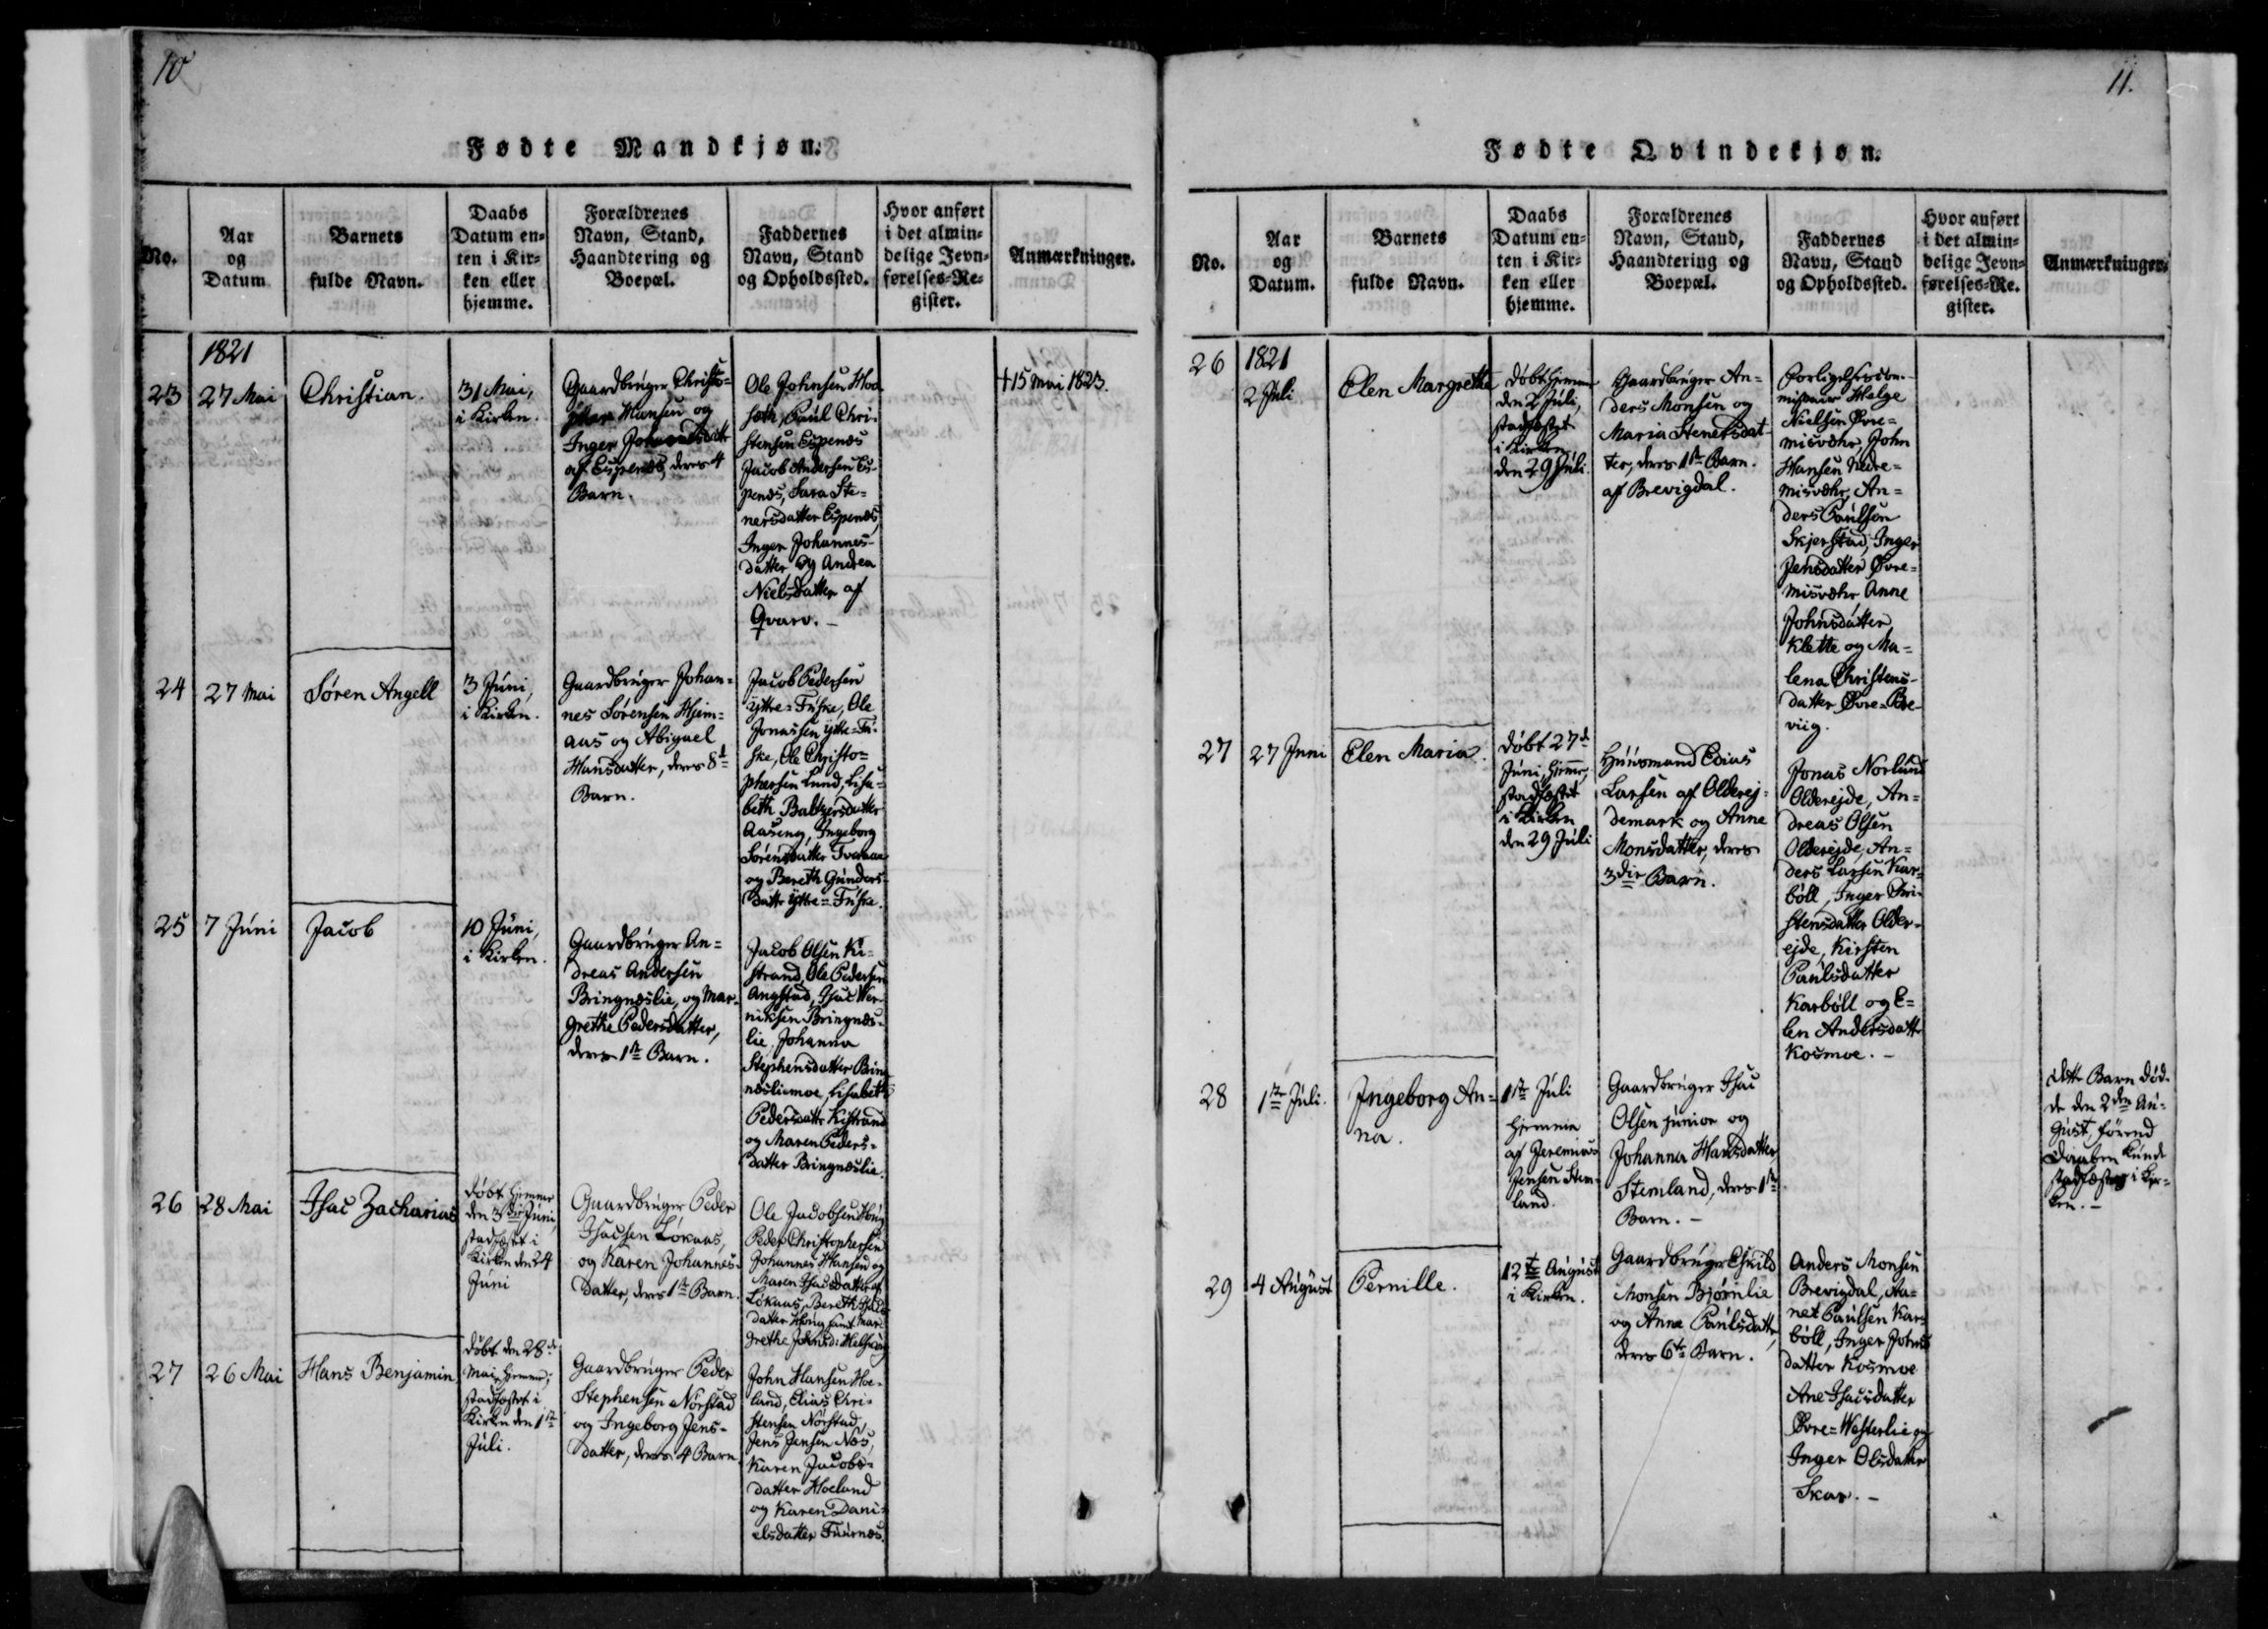 10
Fødte Mandkjøn.
No.
Aar
og
Datum
Barnets
fulde Navn.
Daabs
Datum en-
ten i Kir-
ken eller
hjemme.
Forældrenes
Navn, Stand,
Haandtering og
Boepæl.
Faddernes
Navn, Stand
og Opholdssted.
Hvor anført
i det almin-
delige Jevn-
førelses-Re-
gister.
Anmærkninger.
1821
23
27 Mai
Christian.
31 Mai,
i Kirken.
Gaardbruger Christo-
Hansen og
Inger Johannesdatt
af Espenes, deres 4
Barn.
Ole Johnsen Moe
Paul Chri-
stensen Espenes
Jacob Andersen Es-
penes, Sara Ste-
nersdatter Espenes,
Inger Johannes-
datter og Andrea
Nielsdatter af
Qvarv. -
+ 15 Mai 1823.
24
27 Mai
Søren Angell
3 Juni,
i Kirken.
Gaardbruger Johan-
nes Sørensen Hjem-
aas og Abigael
Hansdatter, deres 8d
Barn.
Jacob Pedersen
ijttre-Fuske, Ole
Jonassen ijttre-Fu-
ske, Ole Christo-
phersen Lund, Lisa-
beth Baltzersdatter
Aaseng, Ingeborg
Sørensdatter
og Bereth Gunders-
datter ijttre-Fuske.
25
7 Juni
Jacob
10 Juni,
i Kirken.
Gaardbruger An-
dreas Andersen
Bringnæslie, og Mar-
grethe Pedersdatter,
deres 1te Barn.
Jacob Olsen Ki-
strand, Ole Pedersen
Angstad, Isac Hen-
niksen Bringnæs-
lie, Johanna
Stephensdatter Bring
næsliemoe, Lisabeth
Pedersdatter Kistrand
og Maren Peders-
datter Bringnæslie.
26
28 Mai
Isac Zacharias
Døbt hjemme
den 3die Juni,
stadfæstet i
Kirken den 24
Juni
Gaardbruger Peder
Isachsen Løkaas,
og Karen Johannes-
datter, deres 1te Barn.
Ole Jacobsen
Peder Christophersen
Johannes Hansen og
Maren Isacsdatter af
Løkaas, Bereth
datter samt Mar-
grethe
27
26 Mai
Hans Benjamin
Døbt den 28de
Mai, hjemme;
stadfæstet i
Kirken den 1te
Juli.
Gaardbruger Peder
Stephensen Nørstad
og Ingeborg Jens-
datter, deres 4 Barn
John Hansen Hoe-
land, Elias Chri-
stensen Nørstad,
Jens Jensen Næs,
Karen Jacobs-
datter Hoeland
og Karen Dani-
elsdatter Fuurnes.
11.
Fødte Qvindekjøn.
No.
Aar
og
Datum.
Barnets
fulde Navn.
Daabs
Datum en-
ten i Kir-
ken eller
hjemme.
Forældrenes
Navn, Stand,
Haandtering og
Boepæl.
Faddernes
Navn, Stand
og Opholdssted.
Hvor anført
i det almin-
delige Jevn-
førelses-Re-
gister.
Anmærkninger.
26
1821
2 Juli
Elen Margrethe
Døbt hjemme
den 2 Juli,
stadfæstet
i Kirken
den 29 Juli.
Gaardbruger An-
ders Monsen og
Maria Stenersdat-
ter, deres 1te Barn.
af Brevigdal.
Forligelsescom-
missair Helge
Nielsen Øvre-
misvær, John
Hansen Nedre-
misvær, An-
ders Paulsen
Skjerstad, Inger
Jensdatter Øvre-
misvær Anne
Johnsdatter
Klette og Ma-
lena Christens-
datter Øvre-Bre-
viig.
27
27 Juni
Elen Maria.
Døbt 27de
Juni, hjemme,
stadfæstet
i Kirken
den 29 Juli
Huusmand Esias
Larsen af Olderej-
demark og Anne
Monsdatter, deres
3die Barn.
Jonas Norlund
Olderejde, An-
dreas Olsen
Olderejde, An-
ders Larsen Kar-
bøll, Inger Chri-
stensdatter Older-
ejde, Kirsten
Paulsdatter
Karbøll og E-
len Andersdatter
Kosmoe. -
28
1te Juli.
Ingeborg An-
na.
1te Juli
hjemme
af Jeremias
Jensen Stem-
land.
Gaardbruger Isac
Olsen junior og
Johanna Hansdatter
Stemland, deres 1te
Barn. -
Dette Barn død-
de den 2den Au-
gust, førend
Daaben kunde
stadfæstes i Kir-
ken. -
29
4 August
Pernille.
12te August
i Kirken.
Gaardbruger Eskild
Monsen Bjørnlie
og Anna Paulsdatter,
deres 6te Barn.
Anders Monsen
Brevigdal, Aa-
net Paulsen Kar-
bøll, Inger Johns
datter Kosmoe
Ane Isacsdatter
Øvre-Westerlie og
Inger Olsdatter
Skar. -